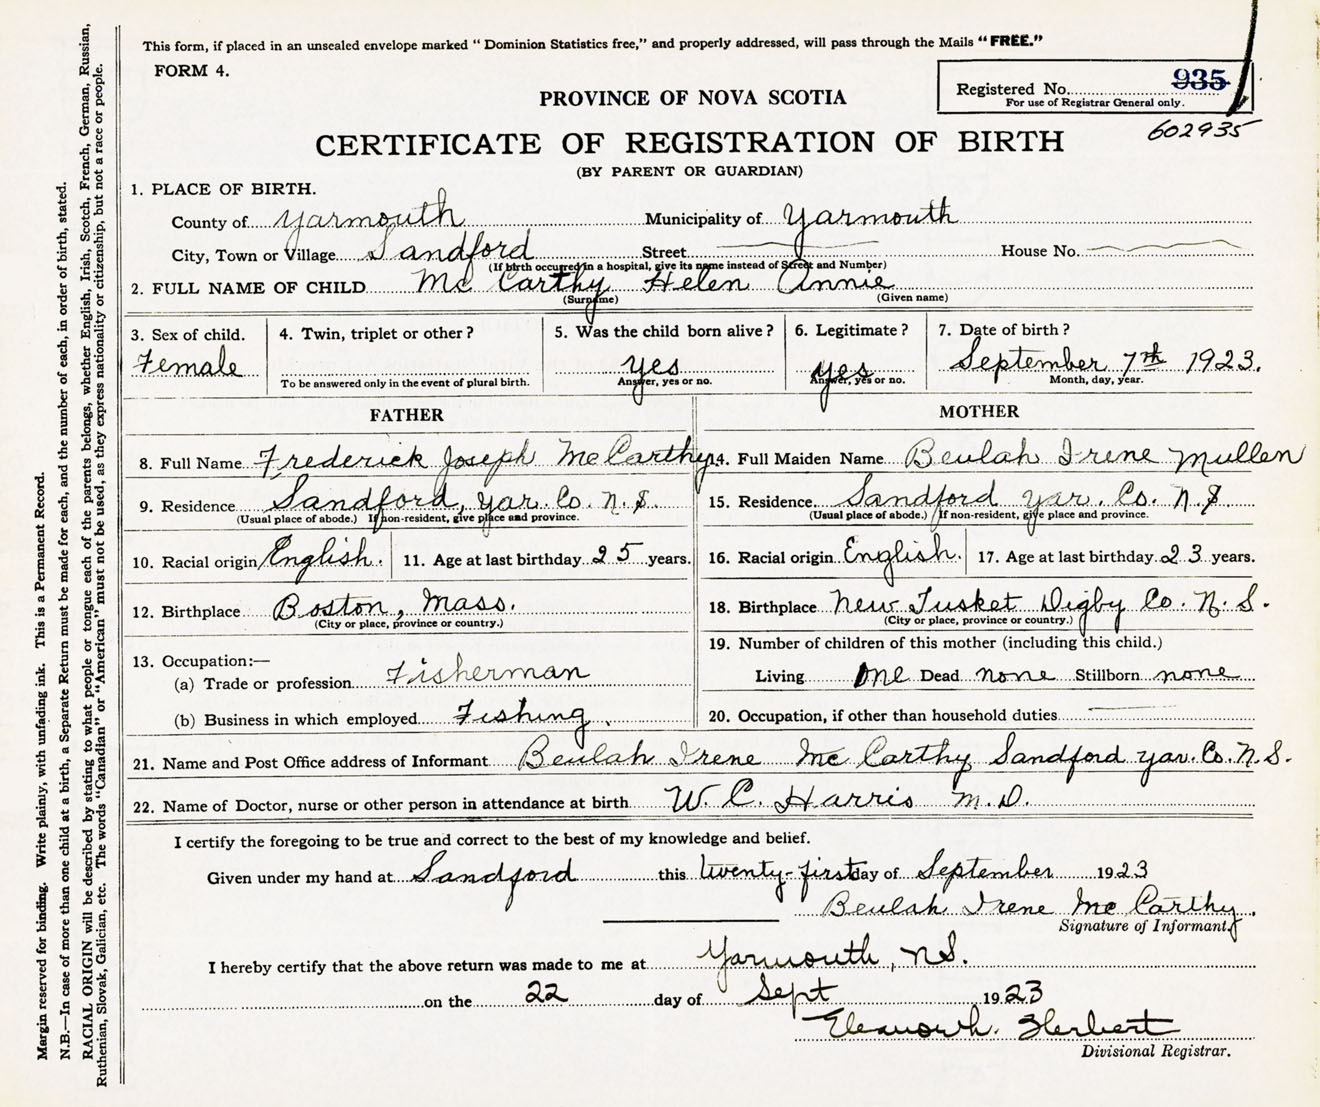 This form, if placed in an unsealed envelope marked "Dominion Statistics free," and properly addressed, will pass through the Mails "FREE."
FORM 4.
Registered No. 935
For use of Registrar General only.
602935
PROVINCE OF NOVA SCOTIA
CERTIFICATE OF REGISTRATION OF BIRTH
(BY PARENT OR GUARDIAN)
1. PLACE OF BIRTH.
County of Yarmouth Municipality of Yarmouth
City, Town or Village Sandford Street House No.
(If birth occurred in a hospital, give its name instead of Street and Number)
2. FULL NAME OF CHILD Mc Carthy Helen Annie
(Surname) (Given name)
3. Sex of child. 4. Twin, triplet or other? 5. Was the child born alive? 6. Legitimate? 7. Date of birth?
Female yes yes September 7th 1923.
To be answered only in the event of plural birth. Answer, yes or no. Answer, yes or no. Month, day, year.
FATHER MOTHER
8. Full Name Frederick Joseph McCarthy 14. Full Maiden Name Beulah Irene Mullen
9. Residence Sandford, Yar. Co. N.S. 15. Residence Sandford Yar. Co. N.S
(Usual place of abode.) If non-resident, give place and province. (Usual place of abode.) If non-resident, give place and province.
10. Racial origin English. 11. Age at last birthday 25 years. 16. Racial origin English. 17. Age at last birthday 23 years.
12. Birthplace Boston, Mass. 18. Birthplace New Tusket Digby Co. N.S.
(City or place, province or country.) (City or place, province or country.)
19. Number of children of this mother (including this child.)
13. Occupation:—
(a) Trade or profession Fisherman Living One Dead none Stillborn none
(b) Business in which employed Fishing. 20. Occupation, if other than household duties
21. Name and Post Office address of Informant Beulah Irene Mc Carthy Sandford Yar. Co. N.S.
22. Name of Doctor, nurse or other person in attendance at birth W. C. Harris M.D.
I certify the foregoing to be true and correct to the best of my knowledge and belief.
Given under my hand at Sandford this twenty-first day of September 1923
Beulah Irene Mc Carthy.
Signature of Informant.
I hereby certify that the above return was made to me at Yarmouth, N.S.
on the 22 day of Sept 1923
Herbert
Divisional Registrar.
Margin reserved for binding. Write plainly, with unfading ink. This is a Permanent Record.
N.B.—In case of more than one child at a birth, a Separate Return must be made for each, and the number of each, in order of birth, stated.
RACIAL ORIGIN will be described by stating to what people or tongue each of the parents belongs, whether English, Irish, Scotch, French, German, Russian,
Ruthenian, Slovak, Galician, etc. The words "Canadian" or "American" must not be used, as they express nationality or citizenship, but not a race or people.